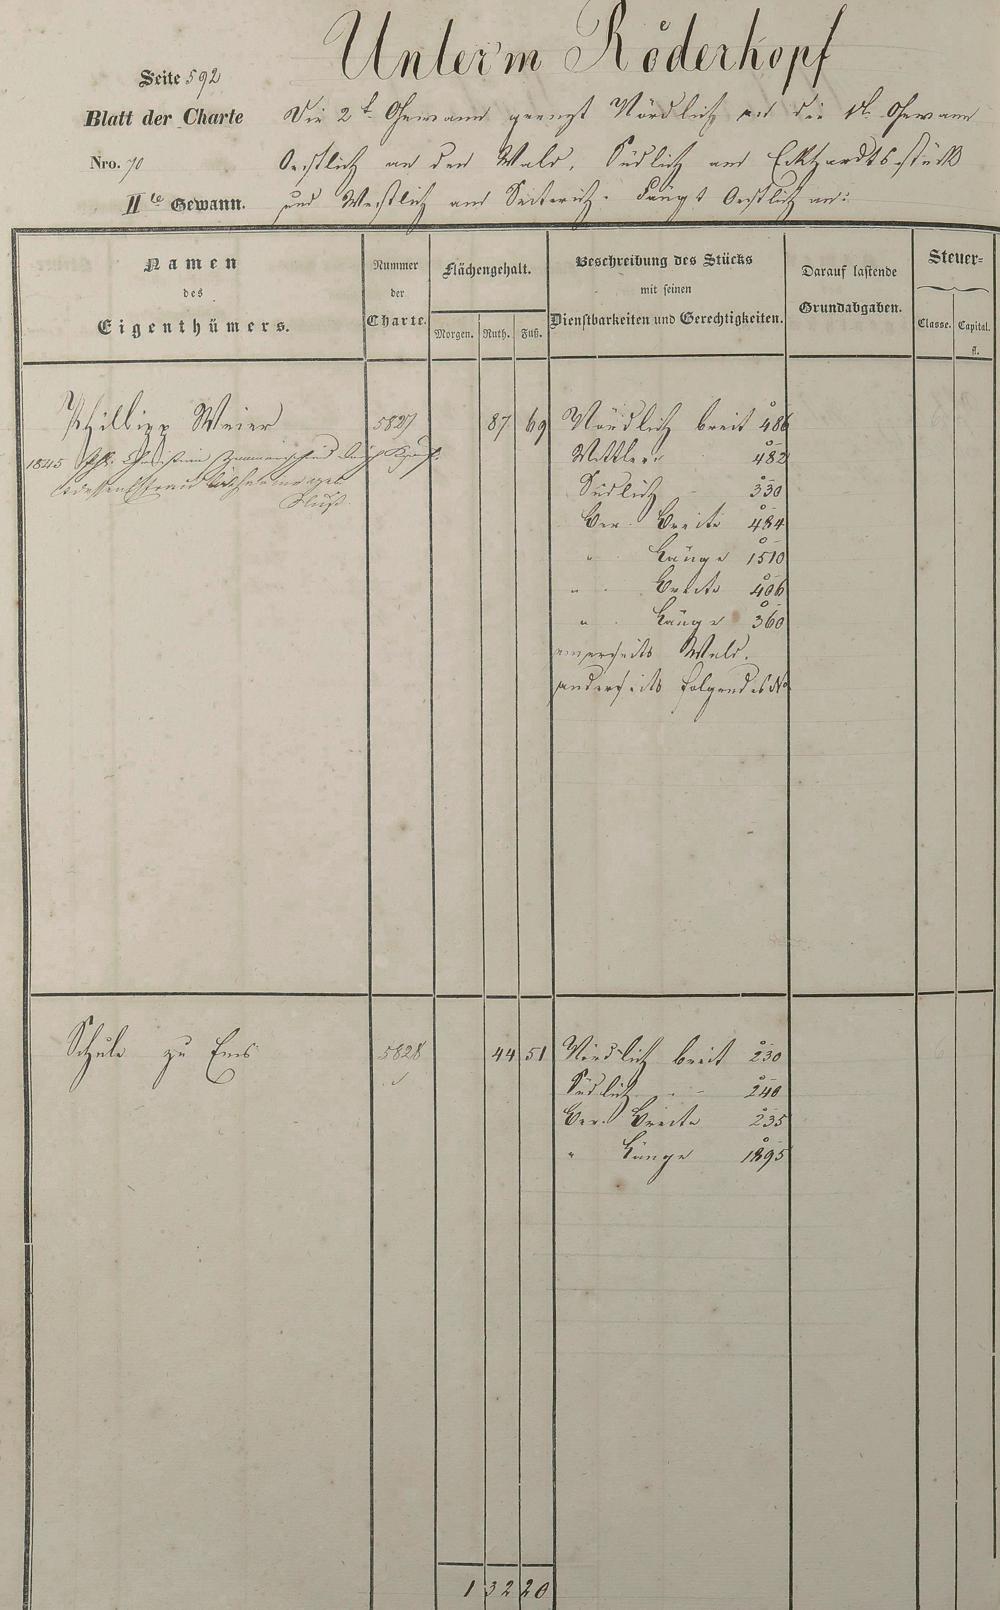 Unter'm Röderkopf
Seite 592
Blatt der Charte
Nro. 70
IIte Gewann.
Die 2te Gewann grenzt Nördlich an die 1te Gewann
Oestlich an den Wald, Südlich an Eckhardtsstück
und Westlich an Fängt Oestlich an:
Namen
des
Eigenthümers.
Nummer
der
Charte.
Flächengehalt.
Morgen. Ruth. Fuß.
Beschreibung des Stücks
mit seinen
Dienstbarkeiten und Gerechtigkeiten.
Darauf lastende
Grundabgaben.
Steuer-
Classe. Capital.
fl.
Phillipp Meier 5827 87 69 Nördlich breit 486
1845 Christian
Mittlere 482
Südlich 330
Ber. Breite 484
" Länge 1510
" Breite 406
" Länge 360
einerseits Wald.
anderseits folgendes No
Schule zu Ems 5828 44 51 Nördlich breit 230
Südlich " 240
Ber. Breite 235
" Länge 1895
1 32 20